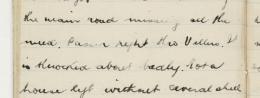 the main road missing all the
mud. Passed right thro Villers. It
is knocked about badly. Not a
house left without several shell